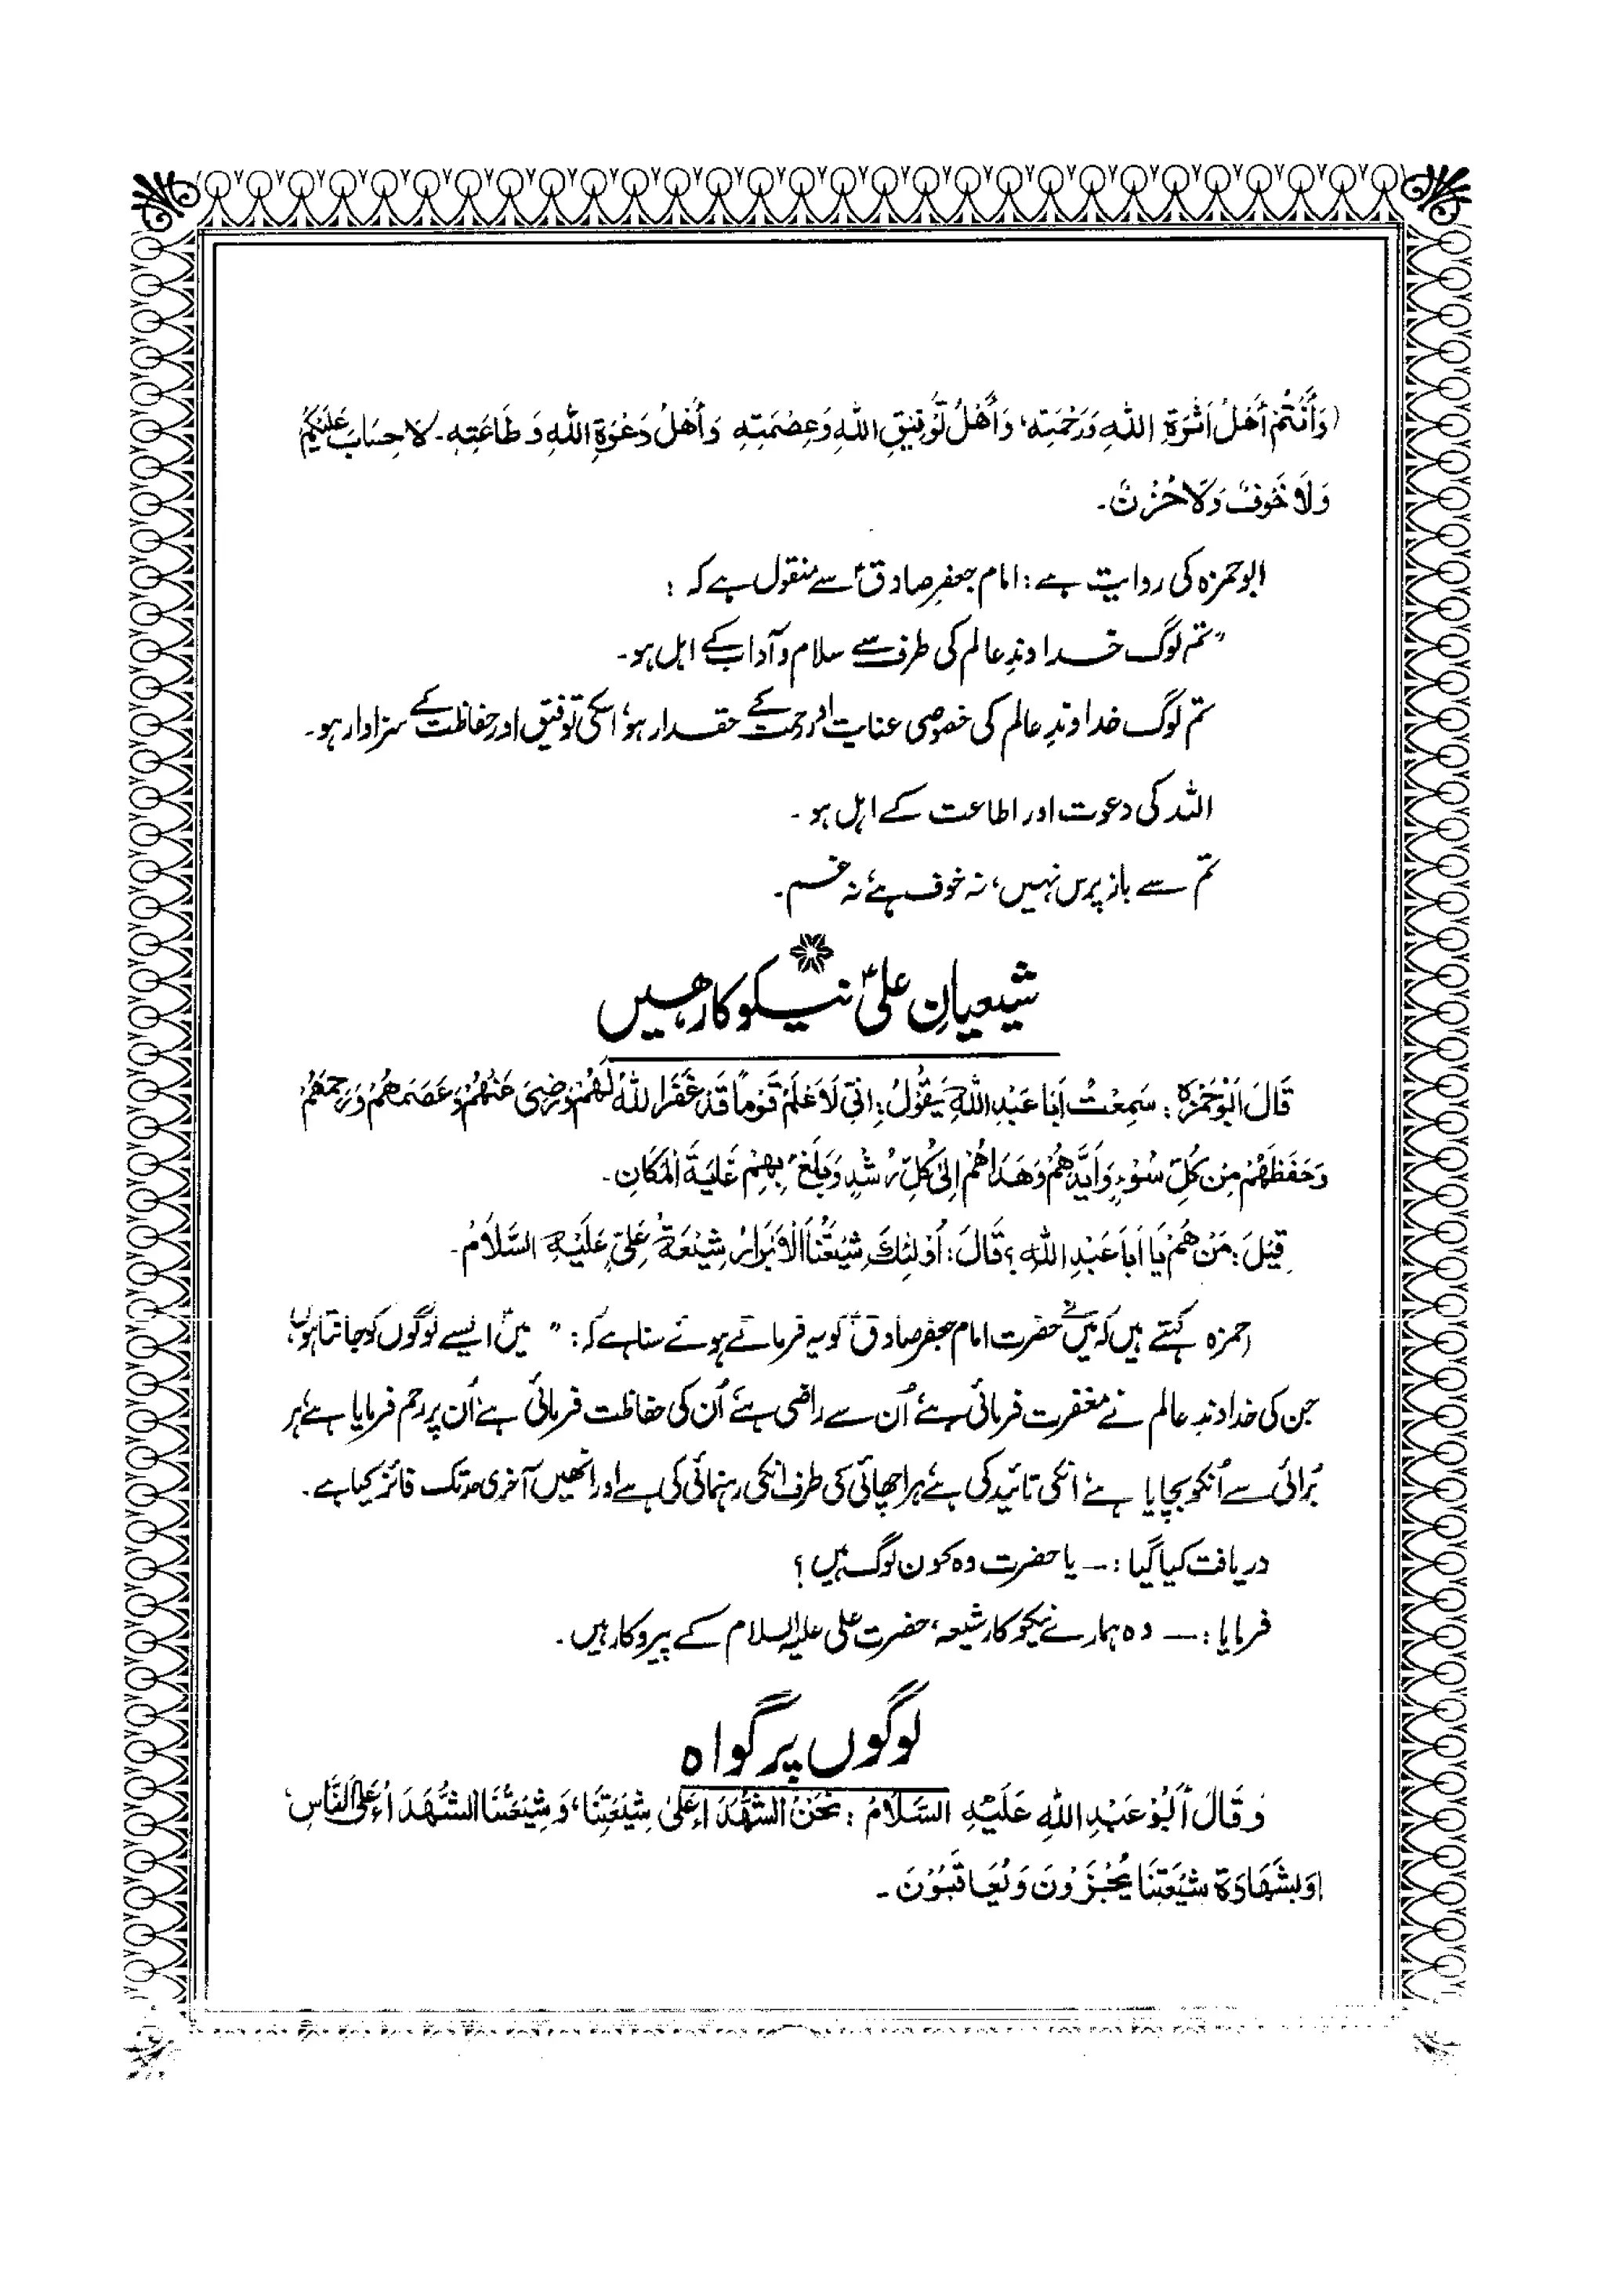 (وَأَنْتُمْ أَهْلُ أَثَرَةِ اللهِ وَرَحْمَتِهِ، وَأَهْلُ تَوْفِيقِ اللهِ وَعِصْمَتِهِ وَأَهْلُ دَعْوَةِ اللهِ وَطَاعَتِهِ۔ لَا حِسَابَ عَلَيْكُمْ
وَلَا خَوْفٌ وَلَا حُزْنٌ۔
ابوحمزہ کی روایت ہے: امام جعفرِ صادقؑ سے منقول ہے کہ :
”تم لوگ خداوندِ عالم کی طرف سے سلام و آداب کے اہل ہو۔
تم لوگ خداوندِ عالم کی خصوصی عنایت اور رحمت کے حقدار ہو، اسکی توفیق اور حفاظت کے سزاوار ہو۔
اللہ کی دعوت اور اطاعت کے اہل ہو ۔
تم سے باز پرس نہیں، نہ خوف ہے، نہ غم۔
شیعیانِ علیؑ نیکوکار ہیں
قَالَ اَبُوْحَمْزَه : سَمِعْتُ اَبَا عَبْدِ اللهِ يَقُوْلُ: اِنِّي لَاَعْلَمُ قَوْماً قَدْ غَفَرَ اللهُ لَهُمْ وَرَضِيَ عَنْهُمْ وَعَصَمَهُمْ وَرَحِمَهُمْ
وَحَفَظَهُمْ مِنْ كُلِّ سُوْءٍ وَاَيَّدَهُمْ وَهَدَاهُمْ اِلىٰ كُلِّ رُشْدٍ وَبَلَغَ بِهِمْ غَايَةَ الْمَكَانِ۔
قِيْلَ: مَنْ هُمْ يَا اَبَا عَبْدِ اللهِ ؟ قَالَ: اُوْلٰئِكَ شِيْعَتُنَا الْاَبْرَارُ شِيْعَةُ عَلِيٍّ عَلَيْهِ السَّلَامُ۔
(حمزہ کہتے ہیں کہ میں نے حضرت امام جعفر صادقؑ کو یہ فرماتے ہوئے سنا ہے کہ: ” میں ایسے لوگوں کو جانتا ہوں،
جن کی خداوندِ عالم نے مغفرت فرمائی ہے، اُن سے راضی ہے، اُن کی حفاظت فرمائی ہے، اُن پر رحم فرمایا ہے، ہر
بُرائی سے اُنکو بچایا ہے، انکی تائید کی ہے، ہر اچھائی کی طرف انکی رہنمائی کی ہے اور انھیں آخری حد تک فائز کیا ہے۔
دریافت کیا گیا :— یا حضرت وہ کون لوگ ہیں ؟
فرمایا :— وہ ہمارے نیکوکار شیعہ، حضرت علی علیہ السلام کے پیروکار ہیں۔
لوگوں پر گواہ
وَقَالَ أَبُوْ عَبْدِ اللهِ عَلَيْهِ السَّلَامُ : نَحْنُ الشُّهَدَاءُ عَلىٰ شِيْعَتِنَا، وَشِيْعَتُنَا الشُّهَدَاءُ عَلَى النَّاسِ،
اَوَبِشَهَادَةِ شِيْعَتِنَا يُجْزَوْنَ وَيُعَاقَبُوْنَ ۔